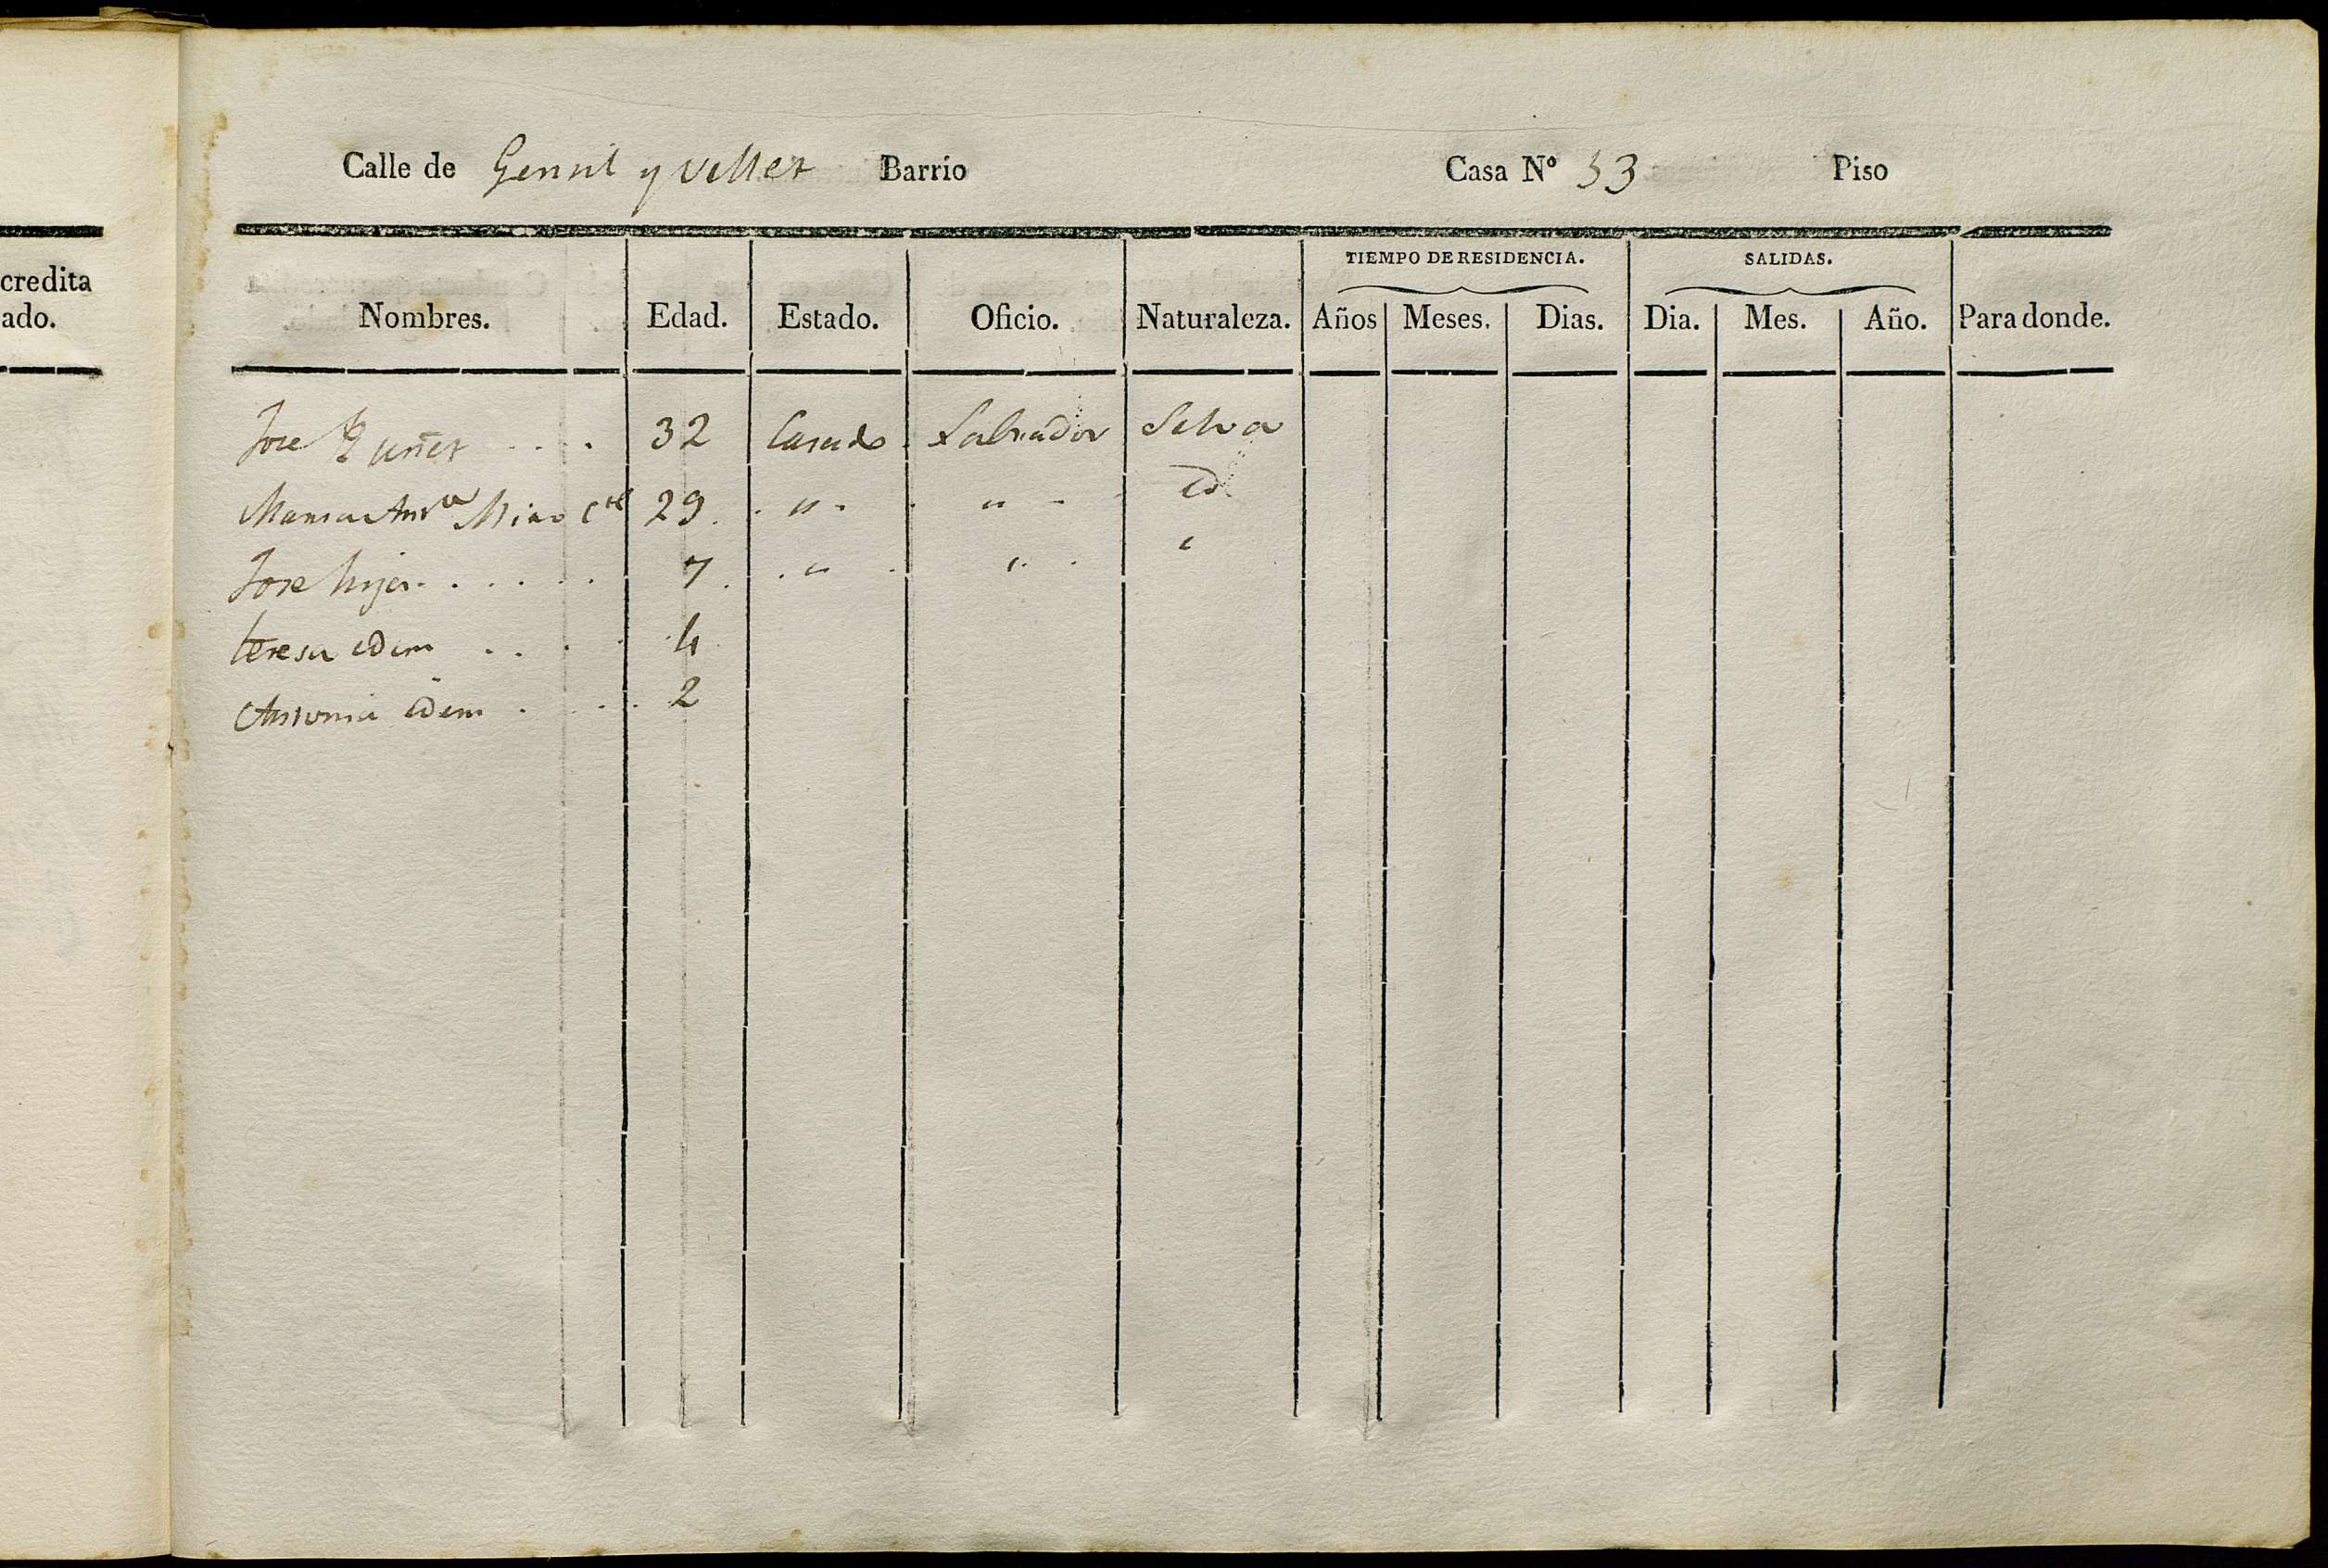 credita
ado.
Calle de Gensil y Vellet Barrio Casa Nº 33 Piso
TIEMPO DE RESIDENCIA. SALIDAS.
Nombres. Edad. Estado. Oficio. Naturaleza. Años Meses. Dias. Dia. Mes. Año. Para donde.
Jose . . . 32 Casado Labrador Selva
Maria Antª Miro 29. " " id
Jose hijo . . . . . 7. " " "
teresa idem . . . . 4
Antonia idem . . . . 2